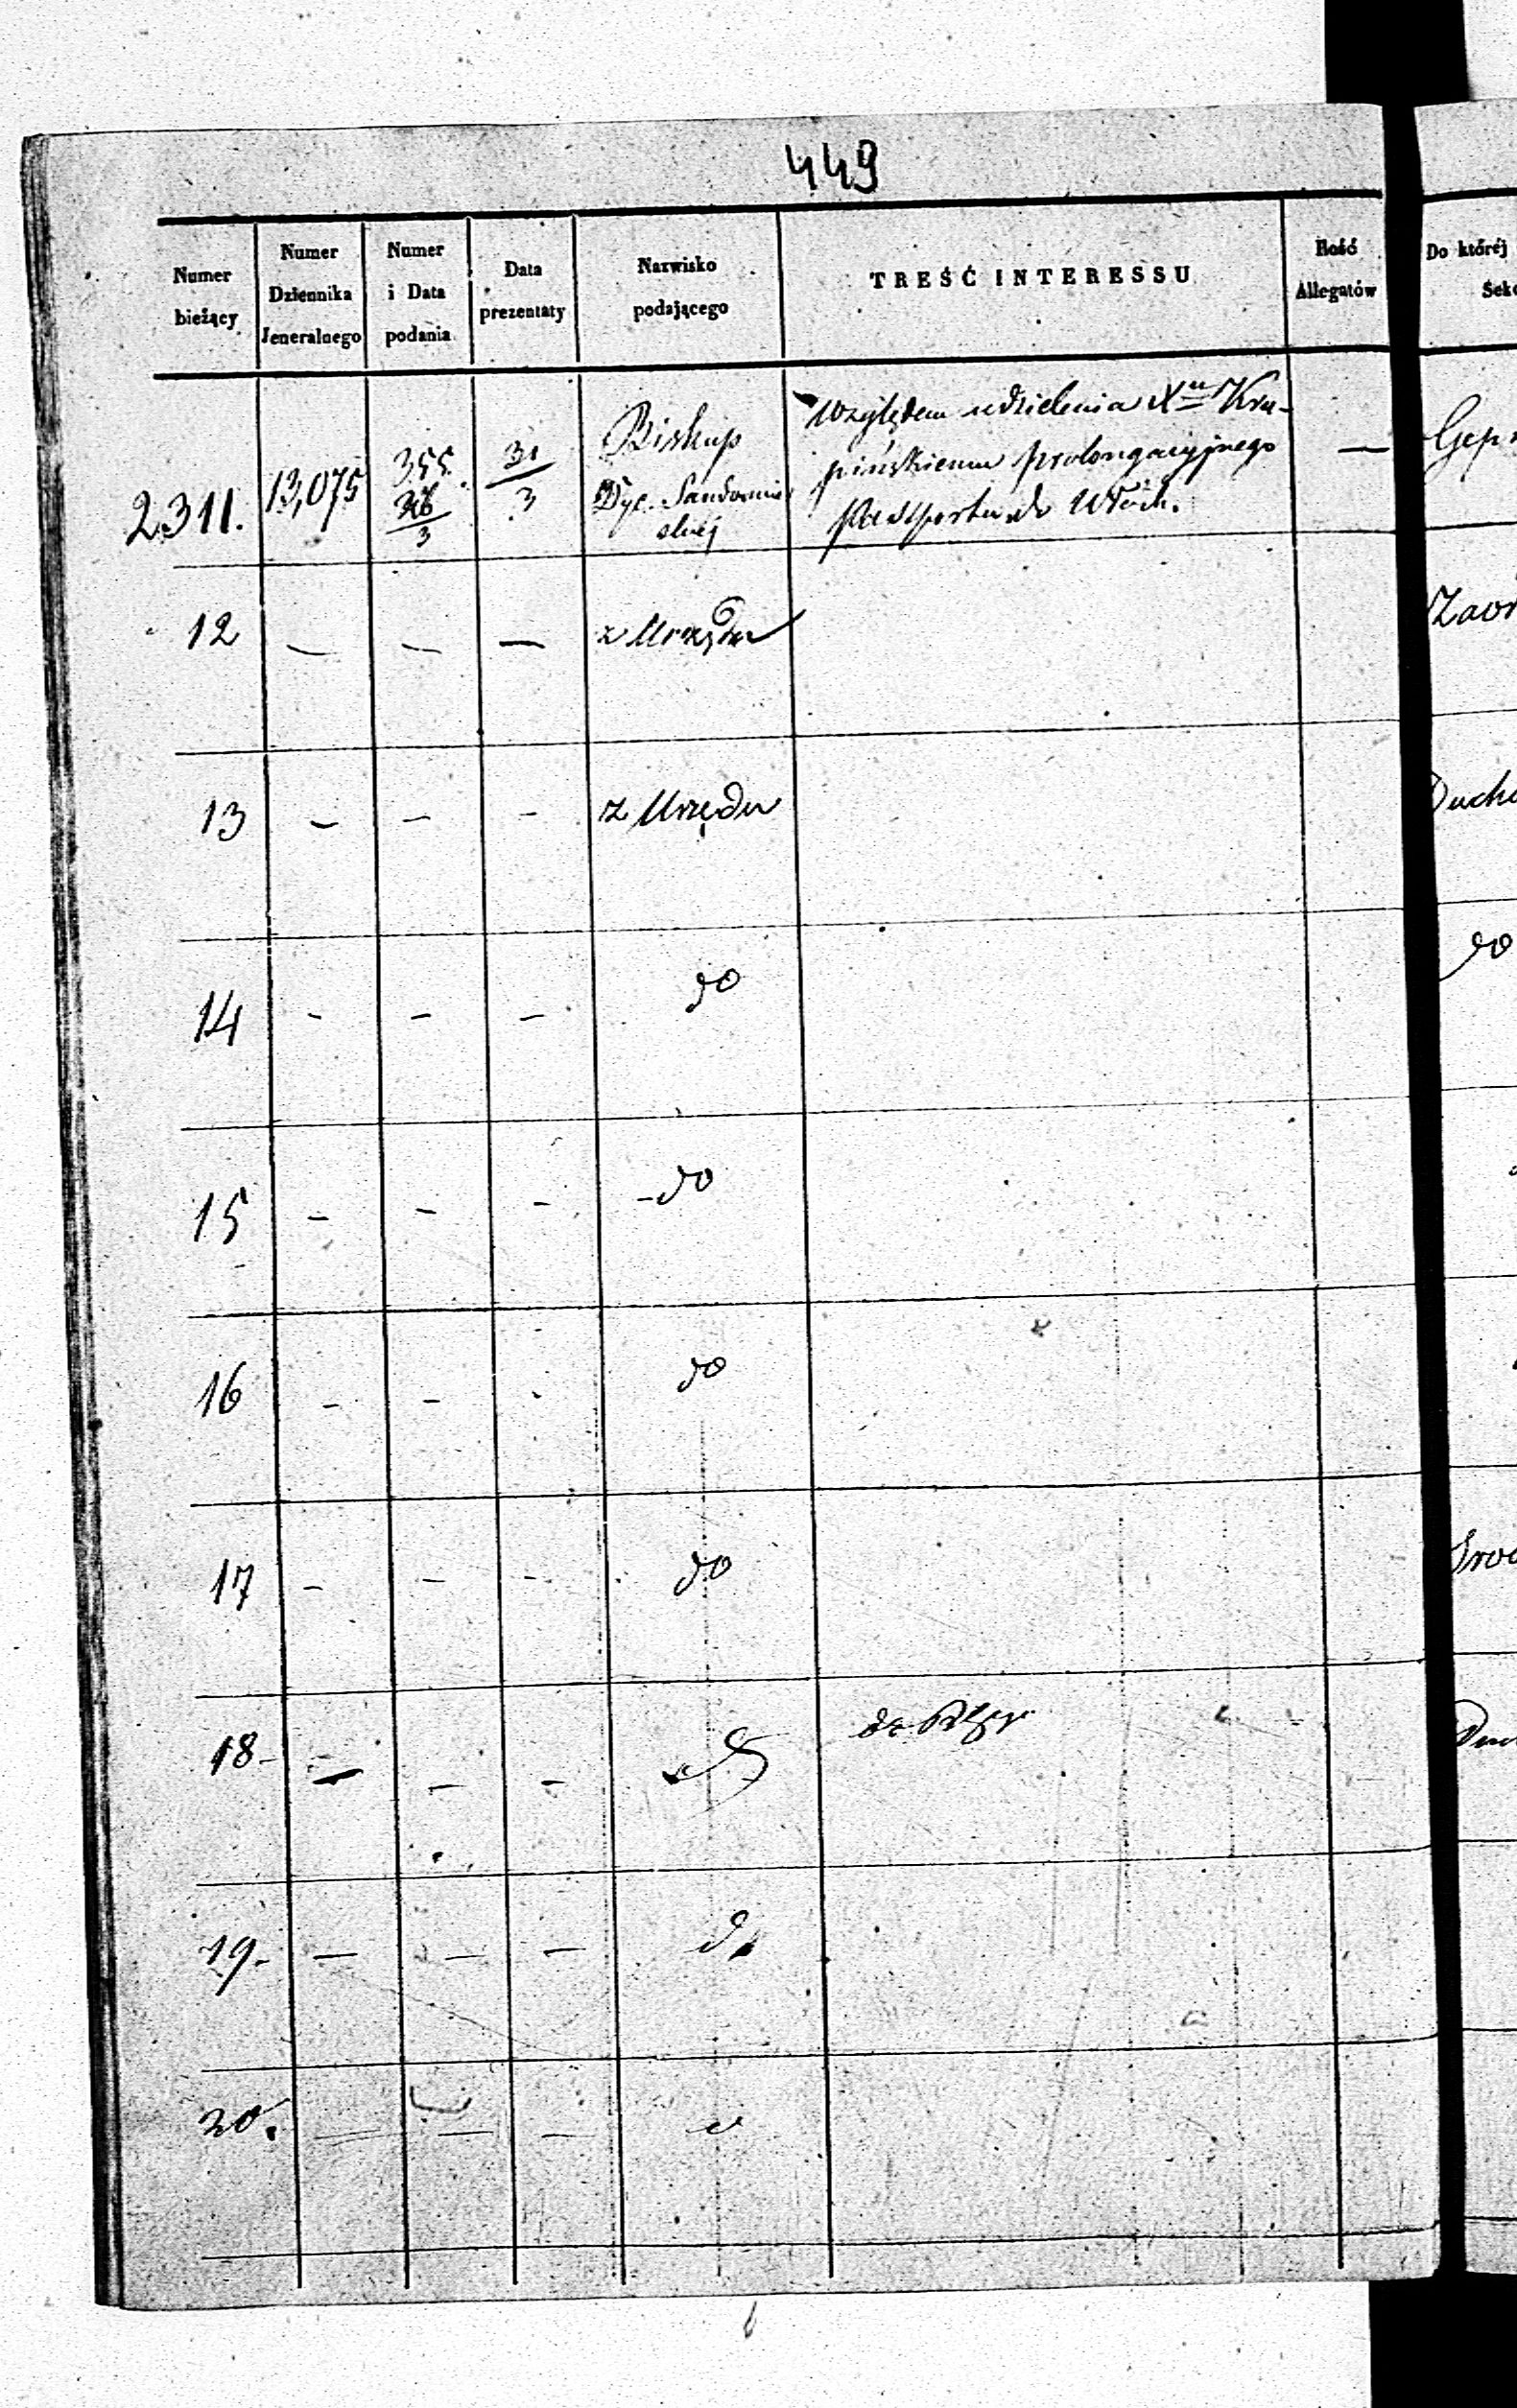 449
Numer bieżący
Numer Dziennika Jeneralnego
Numer i Data podania
Data prezentaty
Nazwisko podającego
TREŚĆ INTERESSU
Ilość Allegatów
Do któréj
Sek
2311. 13,075 355. 3 31/3 Biskup Dyc. Sandomirskiéj —
Względem udzielenia Xu Kru-
pińskiemu prolongacyjnego
passportu do Włoch.
12 — — — z Urzędu
13 — — — z Urzędu
14 — — — do
do
15 — — — do
16 — — - do
17 — — — do
18 — — —
19. — — — do
20. — — —